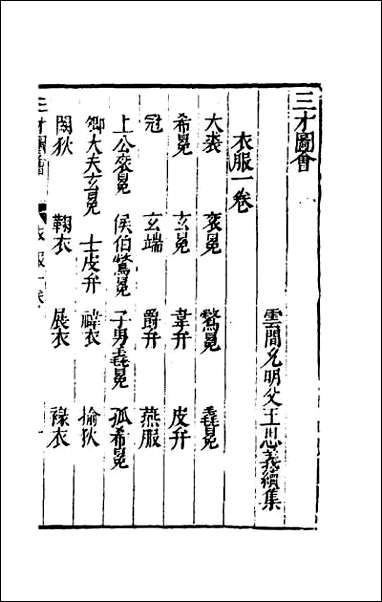 三才圖會
雲間允明父王思義續集
衣服一卷
大裘 袞冕 鷩冕 毳冕
希冕 玄冕 韋弁 皮弁
冠 玄端 爵弁 燕服
上公袞冕 侯伯鷩冕 子男毳冕 孤希冕
卿大夫玄冕 士皮弁 褘衣 揄狄
闕狄 鞠衣 展衣 褖衣
三才圖會 衣服一卷 一